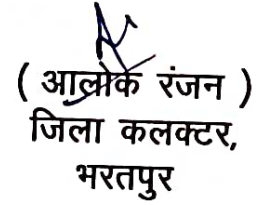 ( आलोक रंजन )
जिला कलक्टर,
भरतपुर